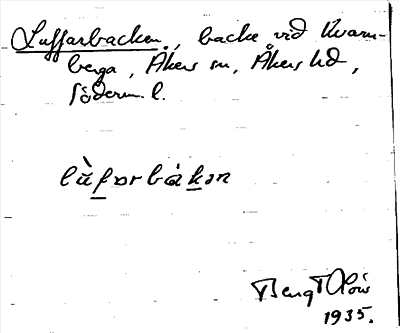 Luffarbacken, backe vid Kvarn-
berga, Åkers sn, Åkers hd,
Söderm. l.
lùfɒrbákən
Bengt
1935.